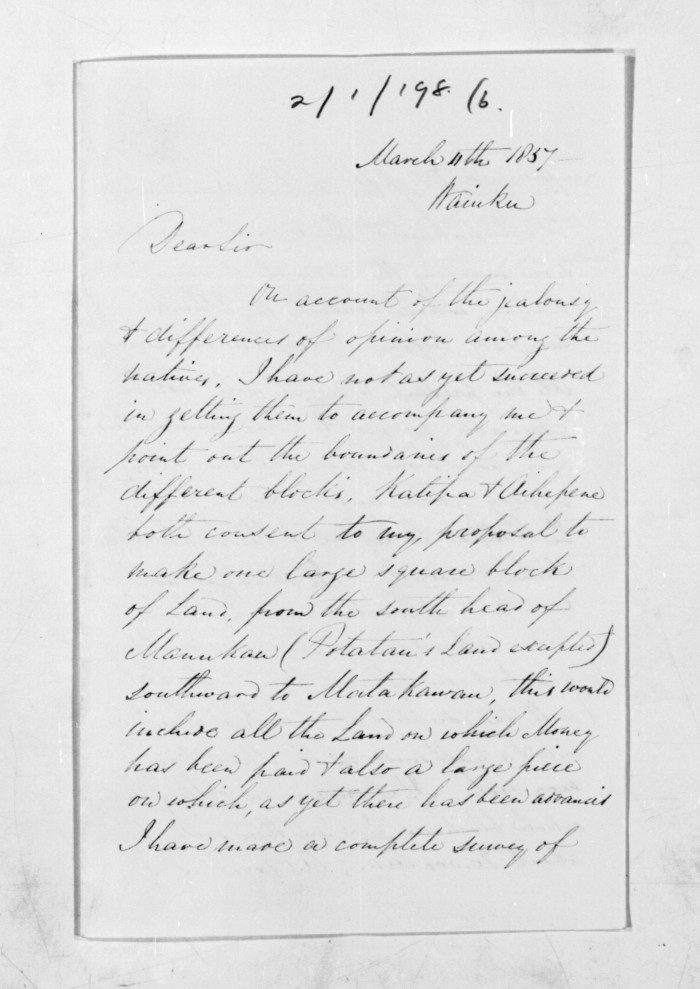 2/1/198 (b.
March 11th 1857
Waiuku
Dear Sir
On account of the jealousy
& differences of opinion among the
natives, I have not as yet succeeded
in getting them to accompany me &
point out the boundaries of the
different blocks. Katipa & Aihepene
both consent to my proposal to
make one large square block
of Land, from the south head of
Manukau (Potatau's Land excepted)
southward to Mata Kawau, this would
include all the Land on which Money
has been paid & also a large piece
on which, as yet there has been advances
I have made a complete survey of